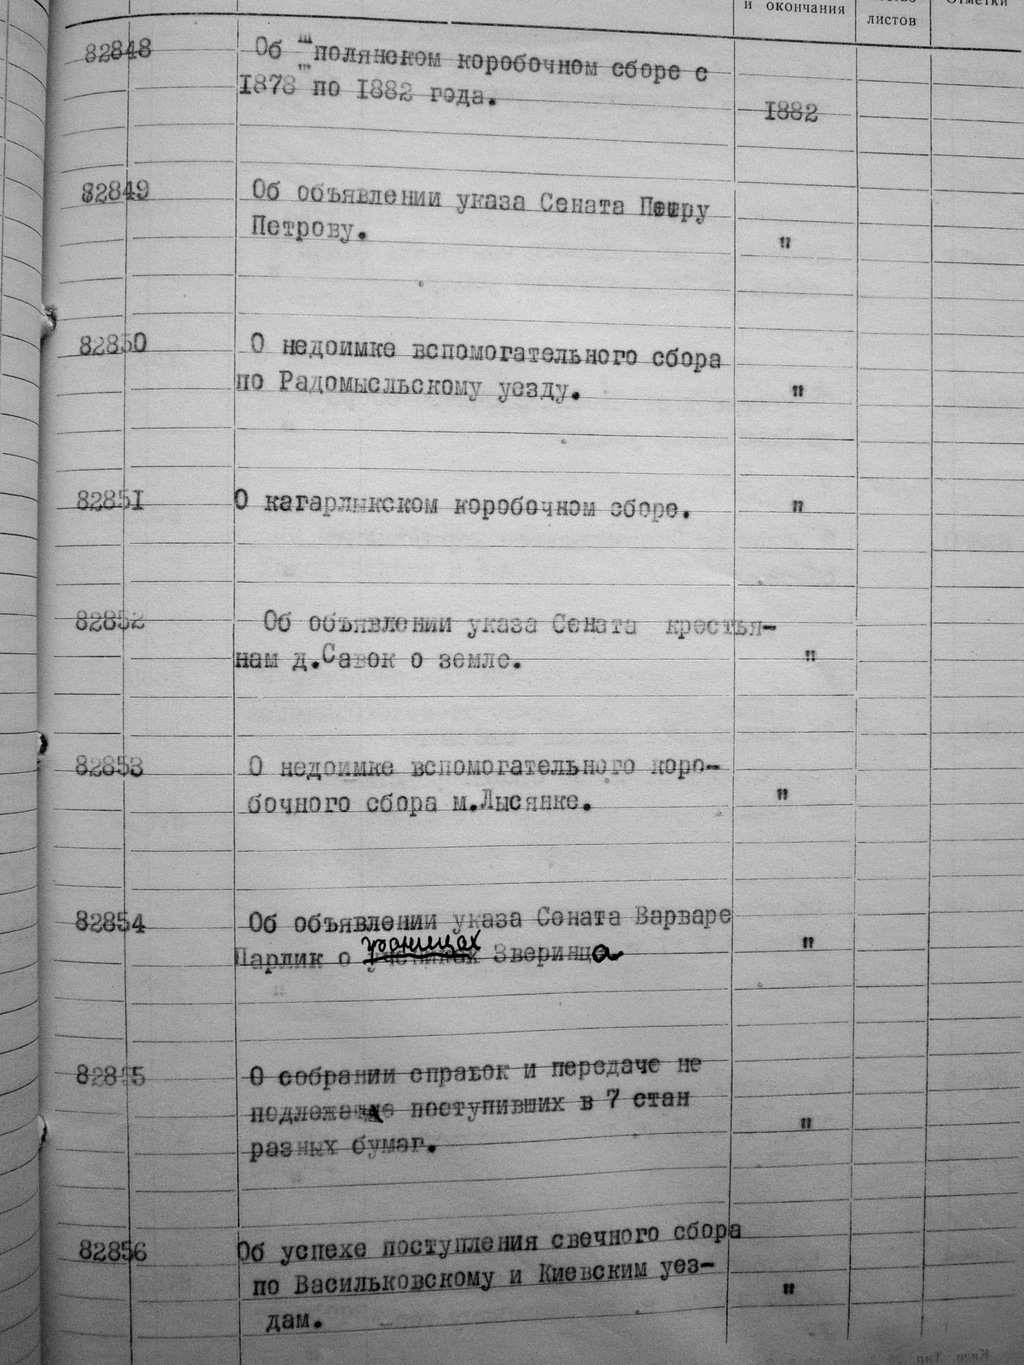 и окончания
листов
Отметки
82848 Об "полянском коробочном сборе с
1878 по 1882 года.
1882
82849 Об объявлении указа Сената Петру
Петрову. "
82850 О недоимке вспомогательного сбора
по Радомысльскому уезду. "
82851 О кагарлыкском коробочном сборе. "
82852 Об объявлении указа Сената крестья-
нам д.Савок о земле. "
82853 О недоимке вспомогательного коро-
бочного сбора м.Лысянке. "
82854 Об объявлении указа Сената Варваре
границах
Парлик о Зверинца "
82855 О собрании справок и передаче не
подлежаще поступивших в 7 стан
разных бумаг. "
82856 Об успехе поступления свечного сбора
по Васильковскому и Киевским уез-
дам. "